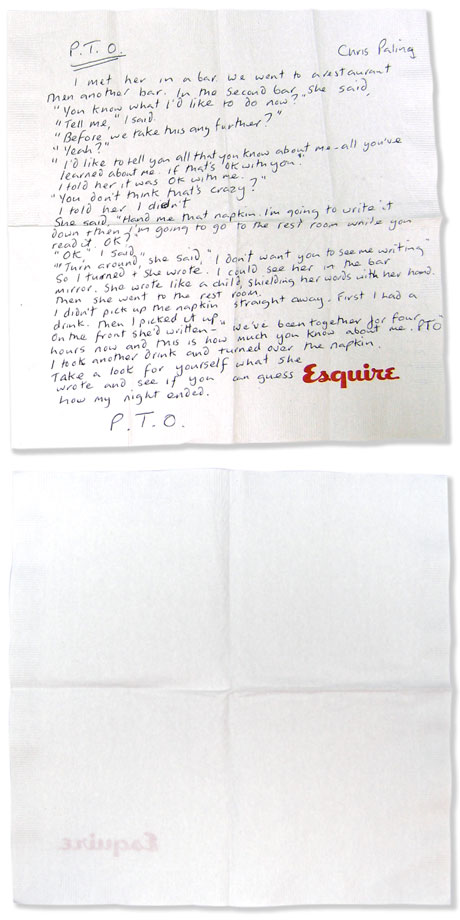 P.T.O.
Chris Paling
I met her in a bar. We went to a restaurant
then another bar. In the second bar, she said,
"You know what I'd like to do now?"
"Tell me," I said.
"Before we take this any further?"
"Yeah?"
"I'd like to tell you all that you know about me - all you've
learned about me. If that's OK with you."
I told her it was OK with me.
"You don't think that's crazy?"
I told her I didn't
She said, "Hand me that napkin. I'm going to write it
down + then I'm going to go to the rest room while you
read it. OK?"
"OK," I said.
"Turn around" she said, "I don't want you to see me writing"
So I turned + she wrote. I could see her in the bar
mirror. She wrote like a child, shielding her words with her hand.
Then she went to the rest room.
I didn't pick up the napkin straight away. First I had a
drink. Then I picked it up.
On the front she'd written - "we've been together for four
hours now and this is how much you know about me. PTO"
I took another drink and turned over the napkin.
Take a look for yourself what she
wrote and see if you can guess
how my night ended.
Esquire
P.T.O.
Esquire